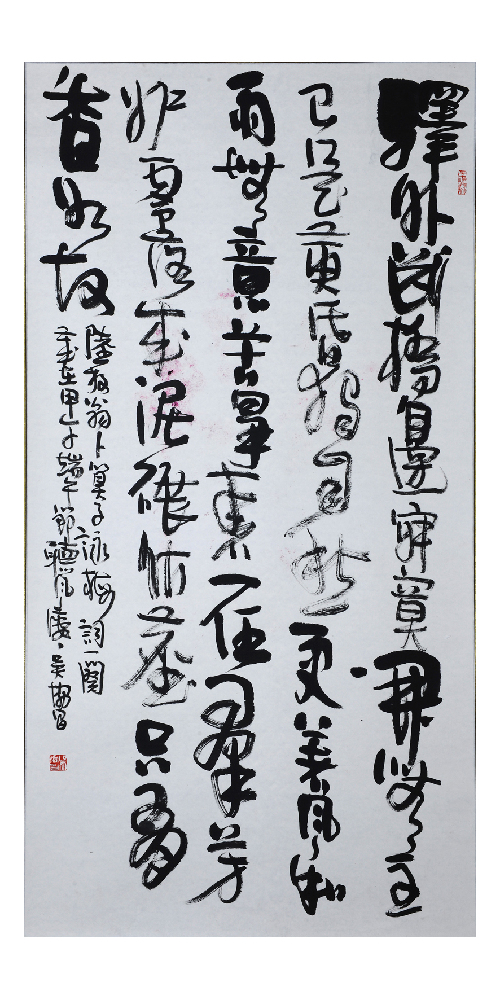 驛外斷橋邊寂寞開無主
已是黄昏獨自愁更著風和
雨無意苦爭春一任羣芳
妒零落成泥碾作塵只有
香如故
陸放翁卜算子詠梅詞一闋
歲在甲午端午節聽風廔吴